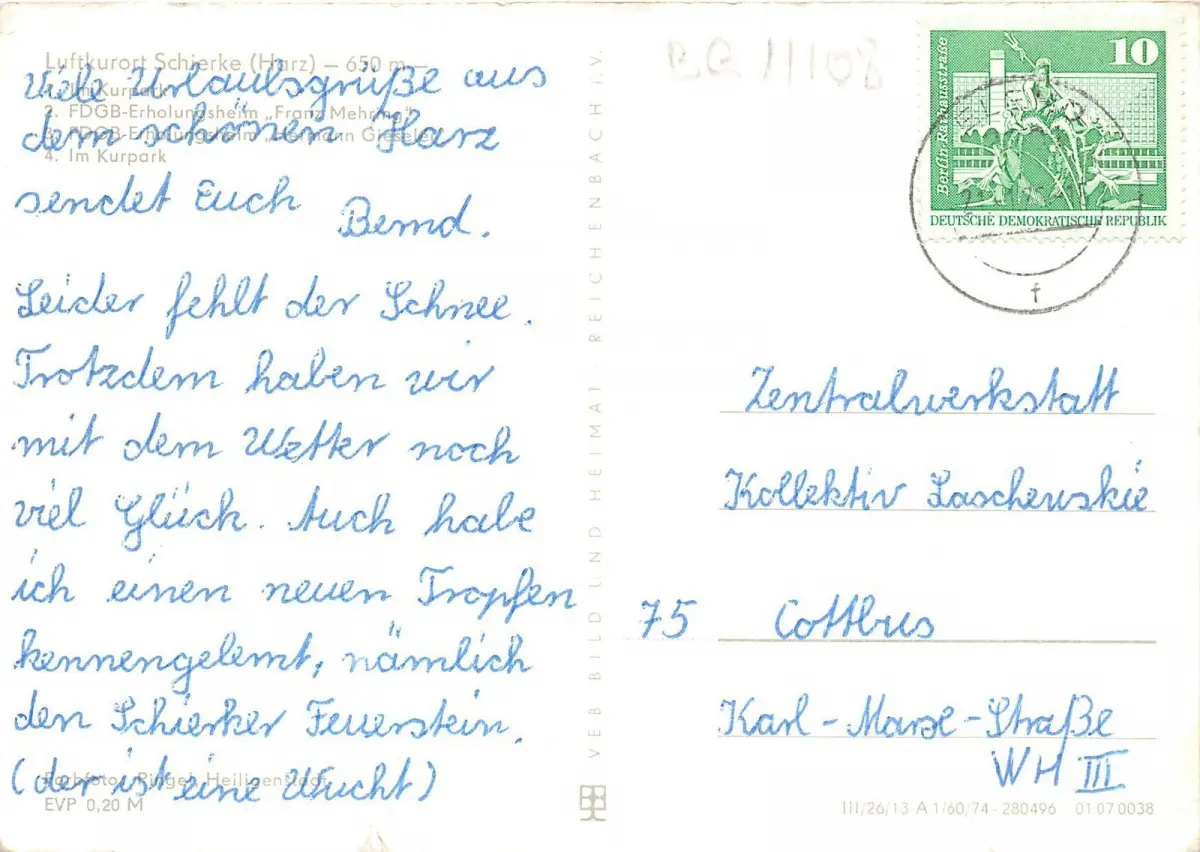 Luftkurort Schierke (Harz) — 650 m —
1. Im Kurpark
2. FDGB-Erholungsheim „Franz Mehring"
3. FDGB-Erholungsheim „Hermann Gieseler"
4. Im Kurpark
Viele Urlaubsgrüße aus
dem schönen Harz
sendet Euch
Bernd.
Leider fehlt der Schnee.
Trotzdem haben wir
mit dem Wetter noch
viel Glück. Auch habe
ich einen neuen Tropfen
kennengelernt, nämlich
den Schierker Feuerstein.
(der ist eine Wucht)
Farbfoto: Ringel, Heiligenstadt
EVP 0,20 M
VEB BILD UND HEIMAT REICHENBACH i. V.
BQ 11108
10
Berlin Rathausstraße
DEUTSCHE DEMOKRATISCHE REPUBLIK
f
Zentralwerkstatt
Kollektiv Laschewskie
75 Cottbus
Karl-Marx-Straße
WH III
III/26/13 A 1/60/74 - 280496 01 07 0038